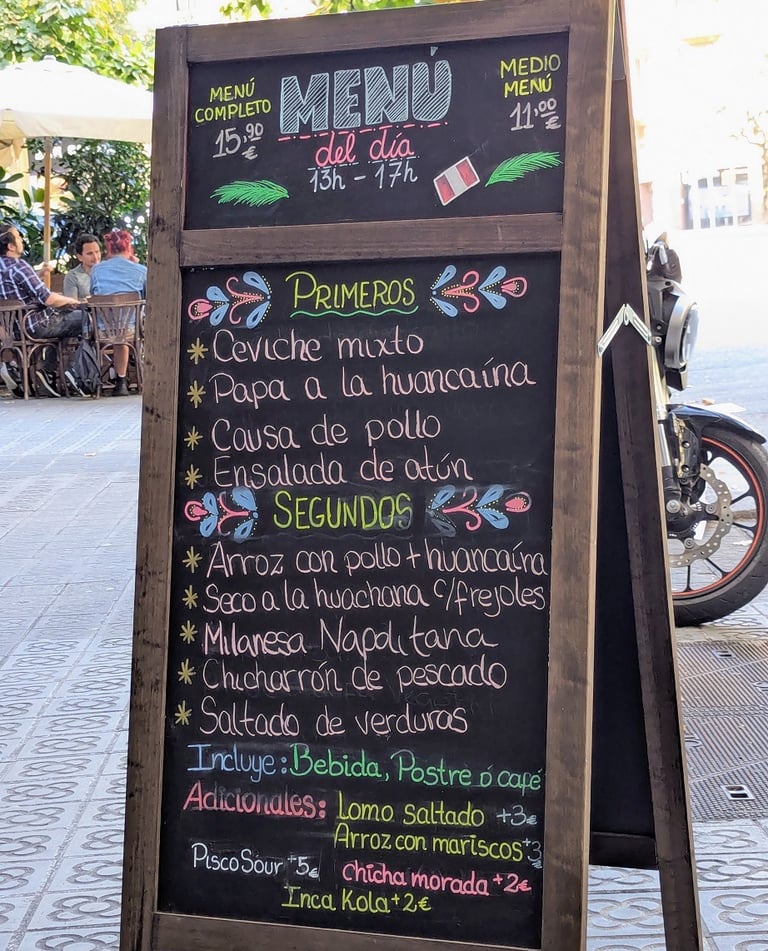 MENÚ COMPLETO 15,90 €
MENÚ
del día
13h - 17h
MEDIO MENÚ 11,00 €
PRIMEROS
Ceviche mixto
Papa a la huancaína
Causa de pollo
Ensalada de atún
SEGUNDOS
Arroz con pollo + huancaína
Seco a la huachana c/frejoles
Milanesa Napolitana
Chicharrón de pescado
Saltado de verduras
Incluye: Bebida, Postre ó café
Adicionales: Lomo saltado +3€
Arroz con mariscos +3
Pisco Sour +5€ chicha morada +2€
Inca Kola +2€